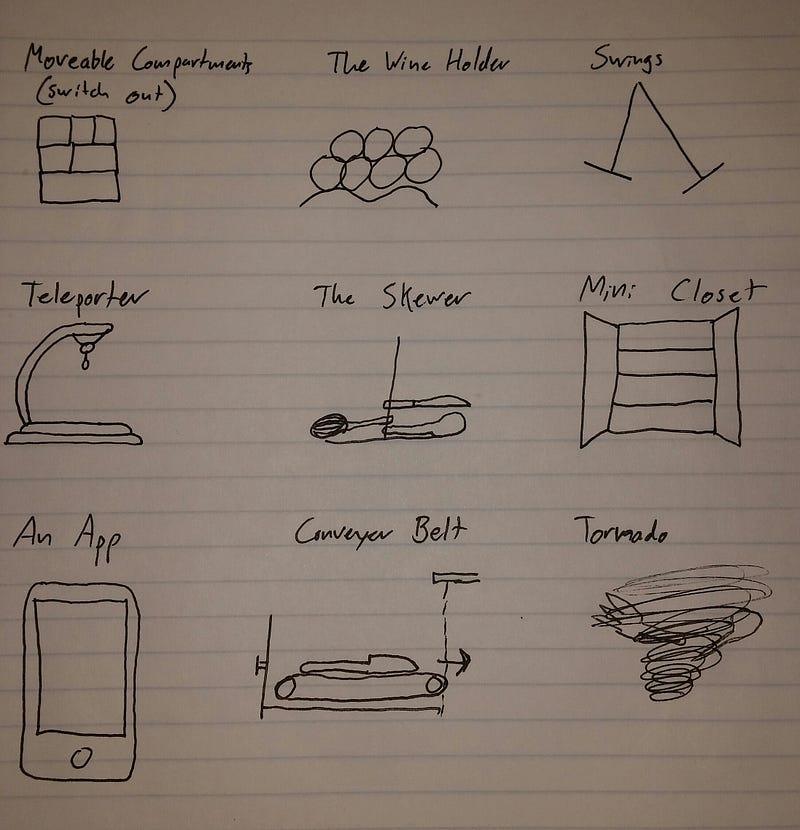 Moveable Compartments
(switch out)
The Wine Holder
Swings
Teleporter
The Skewer
Mini Closet
An App
Conveyer Belt
Tornado